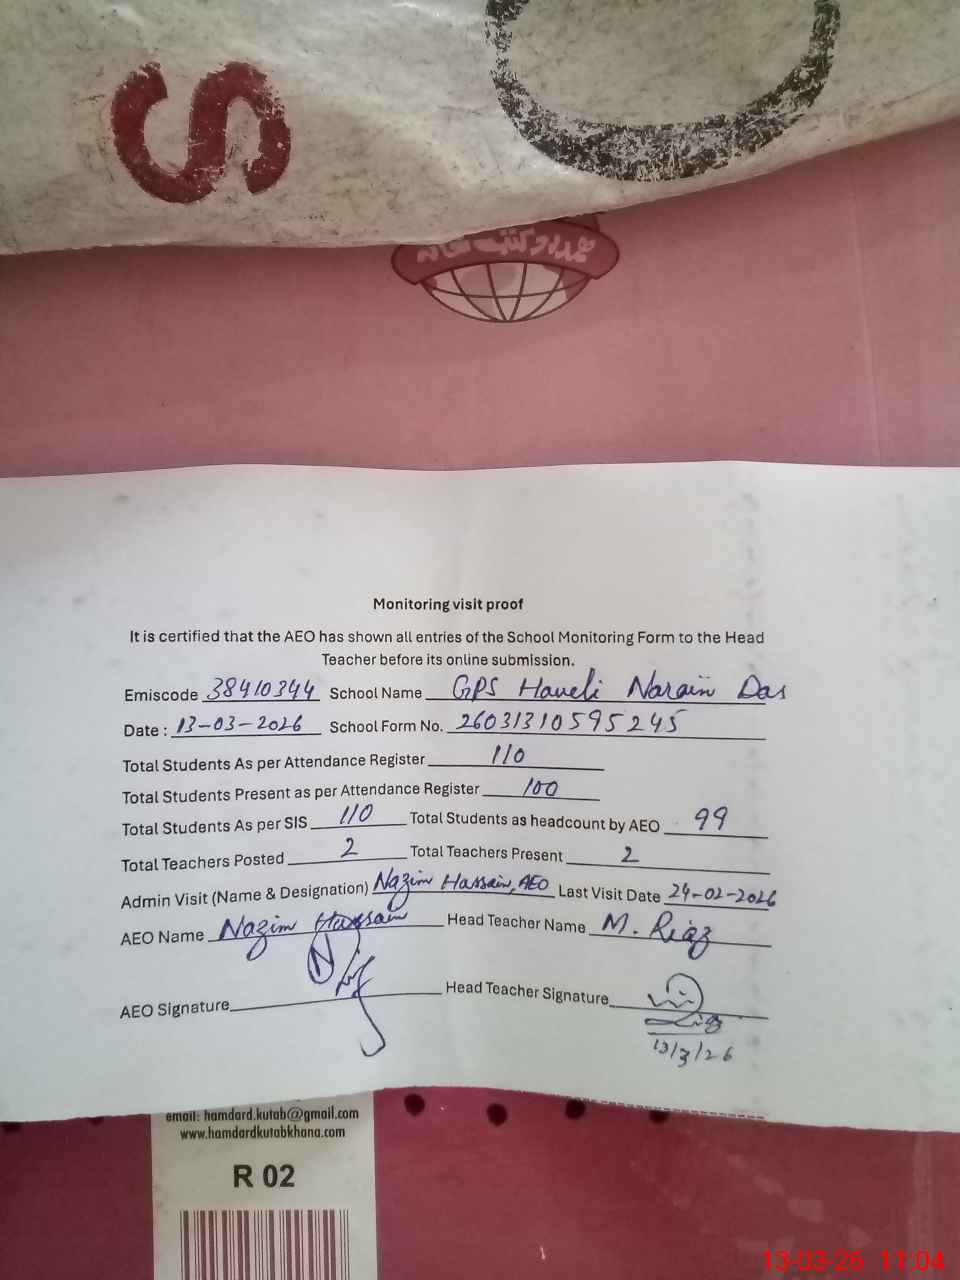 S
ہمدرد کتب خانہ
Monitoring visit proof
It is certified that the AEO has shown all entries of the School Monitoring Form to the Head
Teacher before its online submission.
Emiscode 38410344 School Name GPS Haveli Narain Das
Date : 13-03-2026 School Form No. 26031310595245
Total Students As per Attendance Register 110
Total Students Present as per Attendance Register 100
Total Students As per SIS 110 Total Students as headcount by AEO 99
Total Teachers Posted 2 Total Teachers Present 2
Admin Visit (Name & Designation) Nazim Hassain, AEO Last Visit Date 24-02-2026
AEO Name Nazim Hassain Head Teacher Name M. Riaz
AEO Signature Head Teacher Signature
13/3/26
email: hamdard.kutab@gmail.com
www.hamdardkutabkhana.com
R 02
13-03-26 11:04